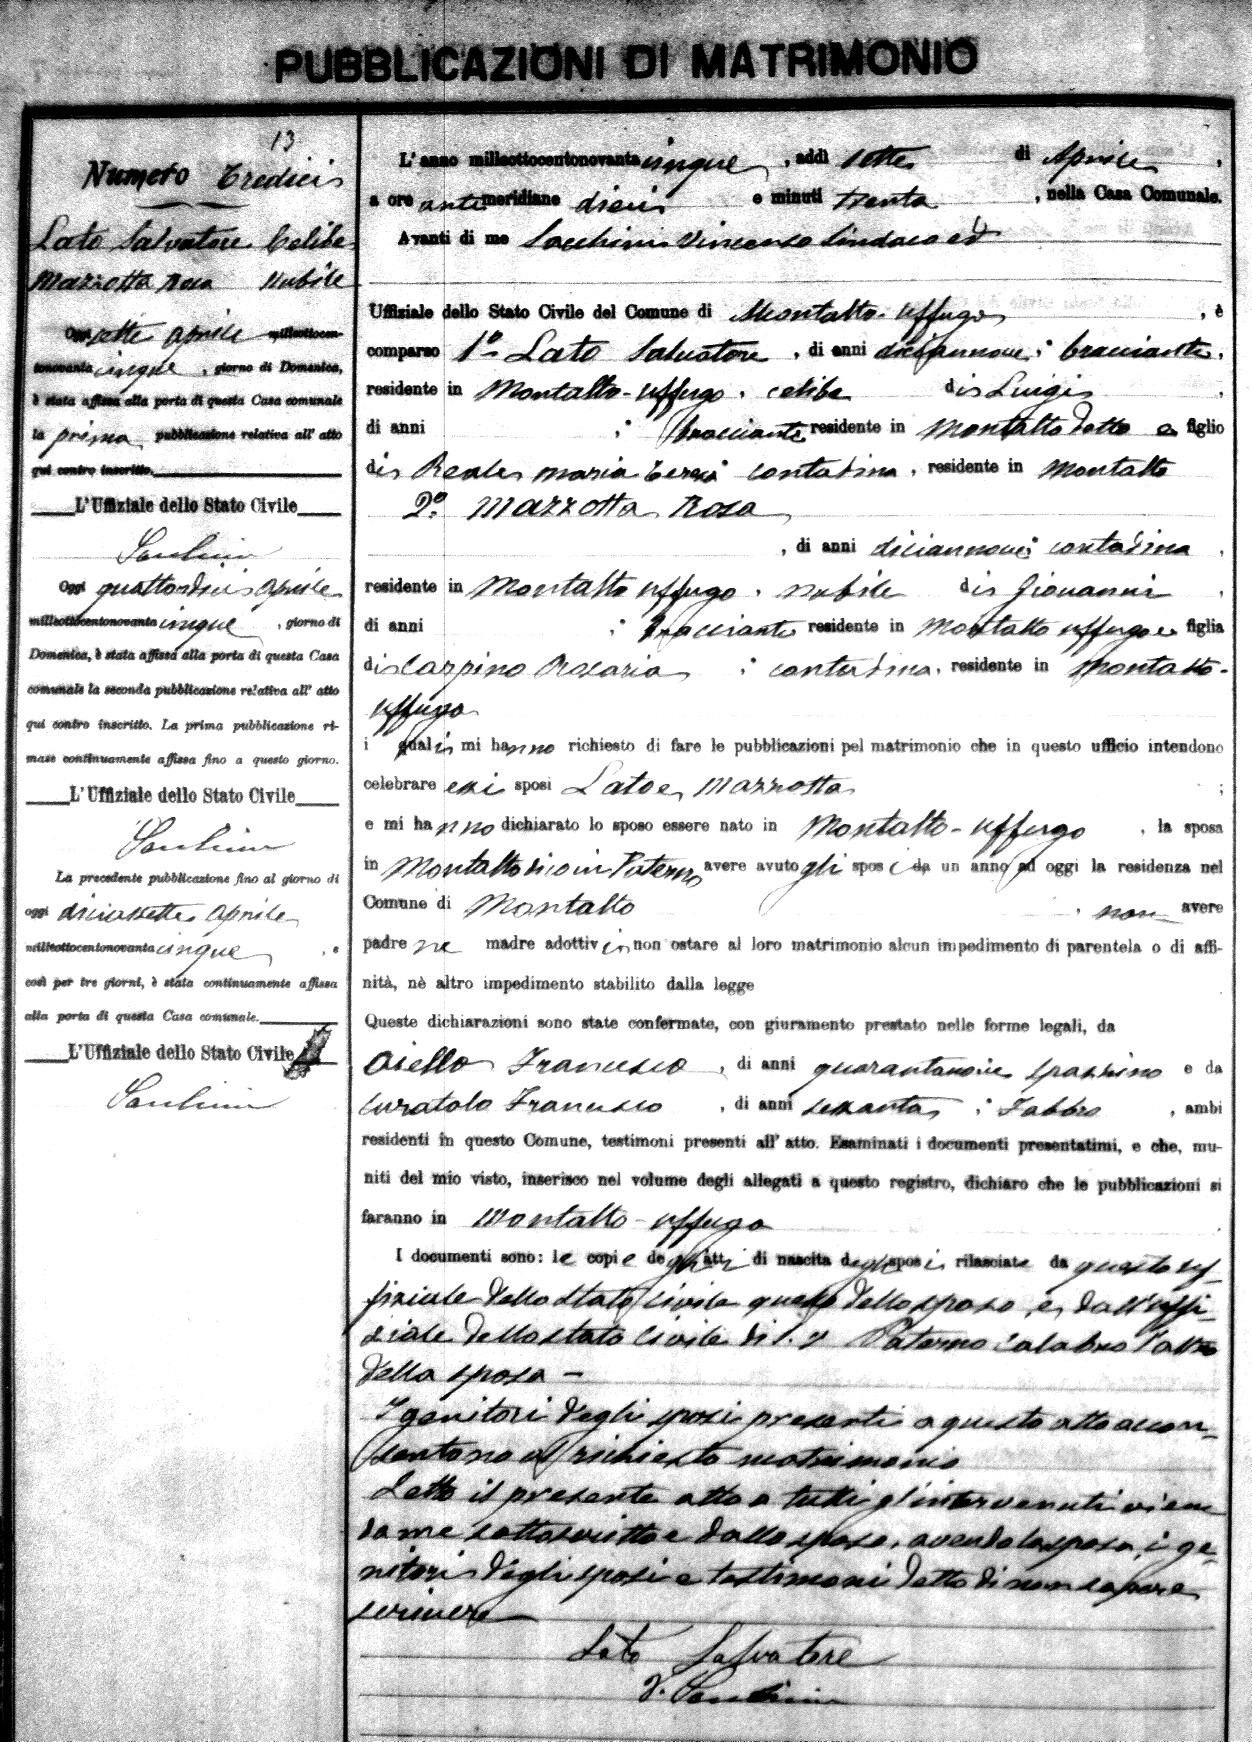 PUBBLICAZIONI DI MATRIMONIO
13
Numero Tredici
Lato Salvatore Celibe
Mazzotta Rosa Nubile
Oggi sette Aprile milleottocen-
tonovantacinque, giorno di Domenica,
è stata affissa alla porta di questa Casa comunale
la prima pubblicazione relativa all' atto
qui contro inscritto.
L'Uffiziale dello Stato Civile
Oggi quattordici Aprile
milleottocentonovantacinque, giorno di
Domenica, è stata affissa alla porta di questa Casa
comunale la seconda pubblicazione relativa all' atto
qui contro inscritto. La prima pubblicazione ri-
mase continuamente affissa fino a questo giorno.
L'Uffiziale dello Stato Civile
La precedente pubblicazione fino al giorno di
oggi diciassette Aprile
milleottocentonovantacinque, e
così per tre giorni, è stata continuamente affissa
alla porta di questa Casa comunale.
L'Uffiziale dello Stato Civile
L' anno milleottocentonovantacinque, addì sette di Aprile,
a ore antimeridiane dieci e minuti trenta, nella Casa Comunale.
Avanti di me Vincenzo Sindaco ed
Uffiziale dello Stato Civile del Comune di Montalto-Uffugo, è
comparso 1o Lato Salvatore, di anni diciannove; bracciante,
residente in Montalto-Uffugo, celibe di Luigi,
di anni ; bracciante residente in Montalto detto e figlio
di Reale Maria Teresa contadina, residente in Montalto
2o Mazzotta Rosa
, di anni diciannove; contadina,
residente in Montalto Uffugo, nubile di Giovanni,
di anni ; bracciante residente in Montalto Uffugo e figlia
di Carpino Rosaria ; contadina, residente in Montalto-
Uffugo
i quali mi hanno richiesto di fare le pubblicazioni pel matrimonio che in questo ufficio intendono
celebrare essi sposi Lato e Mazzotta ;
e mi hanno dichiarato lo sposo essere nato in Montalto-Uffugo, la sposa
in Montalto dico in Paterno avere avuto gli sposi da un anno ad oggi la residenza nel
Comune di Montalto, non avere
padre ne madre adottivi; non ostare al loro matrimonio alcun impedimento di parentela o di affi-
nità, nè altro impedimento stabilito dalla legge
Queste dichiarazioni sono state confermate, con giuramento prestato nelle forme legali, da
Aiello Francesco, di anni quarantanove spazzino e da
Curatolo Francesco, di anni sessanta; Fabbro, ambi
residenti in questo Comune, testimoni presenti all' atto. Esaminati i documenti presentatimi, e che, mu-
niti del mio visto, inserisco nel volume degli allegati a questo registro, dichiaro che le pubblicazioni si
faranno in Montalto-Uffugo
I documenti sono: le copie degli atti di nascita degli sposi rilasciate da questo uf-
fiziale dello stato civile quella dello sposo, e dall'uffi-
ziale dello stato civile di Paterno Calabro l'altra
della sposa -
I genitori degli sposi presenti a questo atto accon-
sentono al richiesto matrimonio
Letto il presente atto a tutti gl'intervenuti viene
da me sottoscritto e dallo sposo, avendo la sposa, i ge-
nitori degli sposi e testimoni detto di non sapere
scrivere
Lato Salvatore